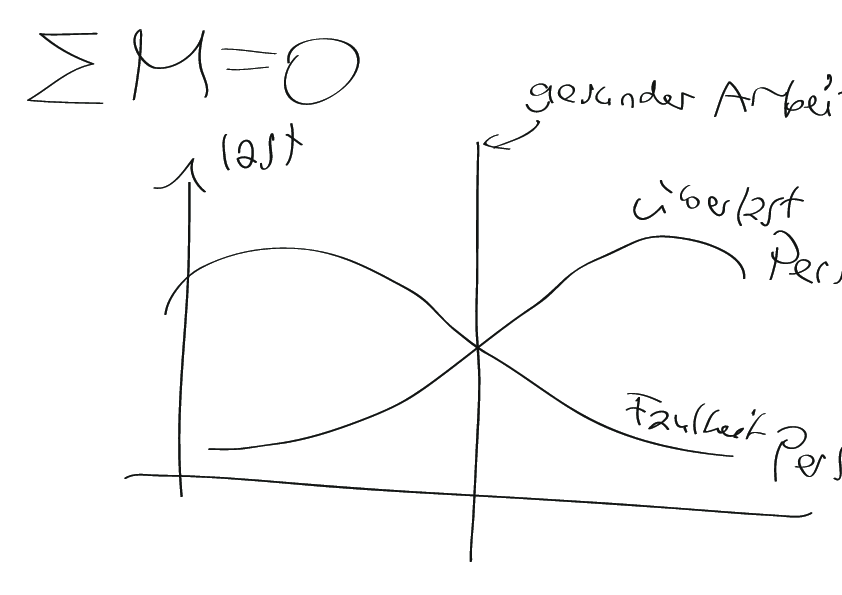 ∑ M = 0
last
gesunder Arbeit
überlast
Pers
Faulheit Pers